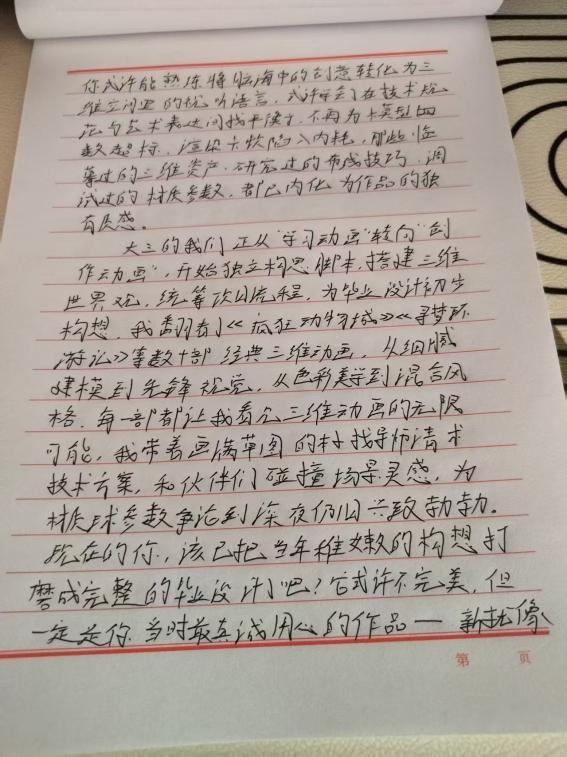 你或许能熟练将脑海中的创意转化为三
维空间里的视听语言，或许学会在技术规
范与艺术表达间找平衡，不再为模型面
数超标、渲染卡顿陷入内耗，那些临
摹过的三维资产，研究过的布线技巧，调
试过的材质参数，都已内化为作品的独
有质感。
大三的我们正从“学习动画”转向“创
作动画”，开始独立构思脚本，搭建三维
世界观，统筹项目流程，为毕业设计初步
构想，我翻到了《疯狂动物城》《寻梦环
游记》等数十部经典三维动画，从细腻
建模到先锋视觉，从色彩美学到混合风
格，每一部都让我看见三维动画的无限
可能，我带着画满草图的本子找导师请求
技术方案，和伙伴们碰撞场景灵感，为
材质球参数争论到深夜仍旧兴致勃勃。
现在的你，该已把当年稚嫩的构想打
磨成完整的毕业设计了吧？它或许不完美，但
一定是你当时最真诚用心的作品一 就像
第 页